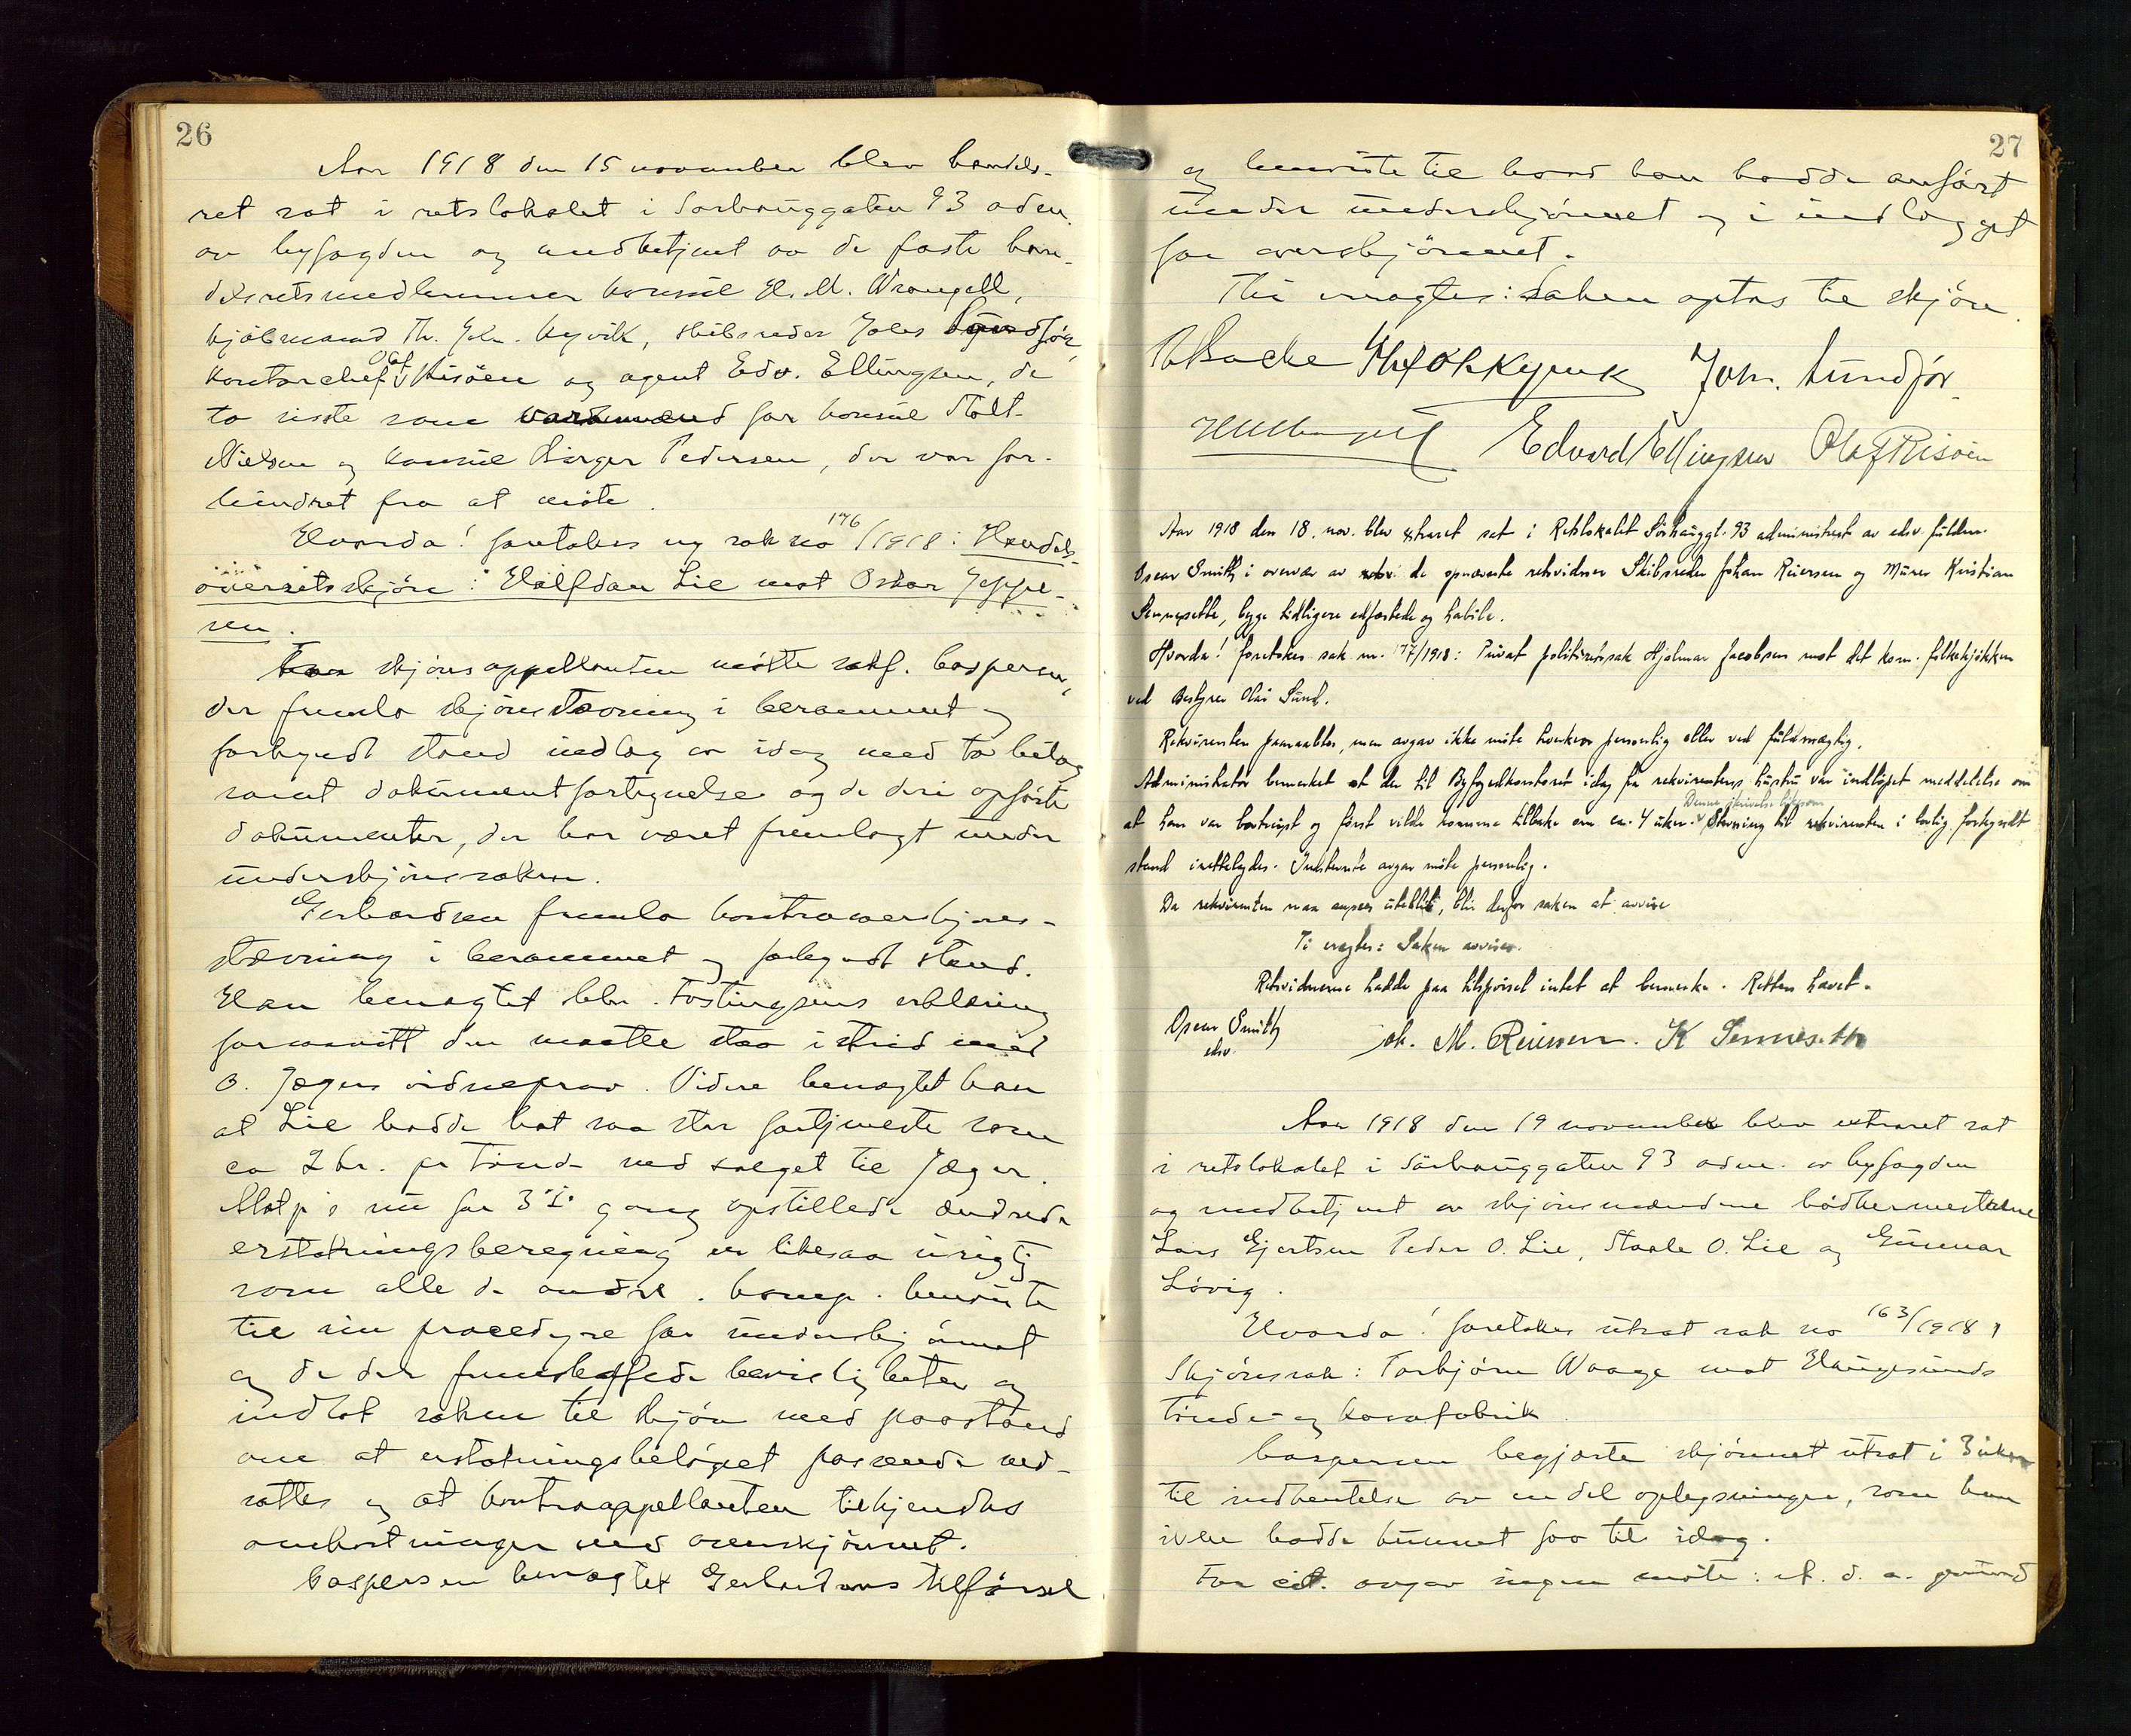 26
Aar 1918 den 15 november blev handels-
ret sat i retslokalet i Sørhauggaten 93 adm.
av byfogden og medbetjent av de faste han-
delsretsmedlemmer konsul H. M. Wrangell,
kjøbmand Th. Joh. Kyvik, skibsreder Johs Sundfør
kontorchef Olaf Risøen og agent Edv. Ellingsen, de
to siste som varamænd for konsul Stolt-
Nielsen og konsul Birger Pedersen, der var for-
hindret fra at møte.
Hvorda! foretokes ny sak no 176/1918: Handels-
overretsskjøn: Halfdan Lie mot Oskar Jeppe-
sen.
For skjønsappellanten møtte sakf. Caspersen,
der fremla skjønsstævning i berammet og
forkyndt stand indlæg av idag med to bilag
samt dokumentfortegnelse og de deri opførte
dokumenter, der har været fremlagt under
underskjønssaken.
Gerhardsen fremla kontraoverskjøns-
stævning i berammet og forkyndt stand.
Han benægtet hr. Tostingsens erklæring
forsaavitt den maatte staa i strid med
O. Jægers vidneprov. Videre benægtet han
at Lie hadde hat saa stor fortjeneste som
ca 2 kr. pr tønde ved salget til Jæger.
Motp's nu for 3die gang opstillede ændrede
erstatningsberegning er likesaa urigtig
som alle de andre. Comp. henviste
til sin procedyre for underskjønnet
og de der fremskaffede bevisligheter og
indlot saken til skjøn med paastand
om at erstatningsbeløpet passende ned-
sættes og at kontraappellanten tilkjendes
omkostninger ved overskjønnet.
Caspersen benægtet Gerhardsens tilførsel
27
og henviste til hvad han hadde anført
under underskjønnet og i indlægget
for overskjønnet.
Thi eragtes: Saken optas til skjøn.
Joh. Sundfør
Edvard Ellingsen Olaf Risøen
Aar 1918 den 18. nov. blev extraret sat i Retslokalet Sørhauggt. 93 administrert av edsv. fuldm.
Oscar Smith i overvær av de opnævnte retsvidner Skibsreder Johan Reiersen og Murer Kristian
Sennesetth, begge tidligere edfæstede og habile.
Hvorda! foretokes sak nr. 177/1918: Privat politiretssak Hjalmar Jacobsen mot det kom. folkekjøkken
ved Bestyrer Olai Sund.
Rekvirenten paaraabtes, men avgav ikke møte hverken personlig eller ved fuldmægtig.
Administrator bemerket at der til Byfogedkontoret idag fra rekvirentens hustru var indløpet meddelelse om
Denne skrivelse likesom
at han var bortreist og først vilde komme tilbake om ca. 4 uker. Stevning til rekvirenten i lovlig forkyndt
stand irettelegdes. Indstevnte avgav møte personlig.
Da rekvirenten maa ansees uteblit, blir derfor saken at avvise
Ti eragtes: Saken avvises.
Retsvidnerne hadde paa tilspørsel intet at bemerke. Retten hævet.
Oscar Smith
edsv.
Joh. M. Reiersen. K Sennesetth
Aar 1918 den 19 november blev extraret sat
i retslokalet i Sørhauggaten 93 adm. av byfogden
og medbetjent av skjønsmændene bødkermesterne
Lars Gjertsen Peder O. Lie, Staale O. Lie og Gunnar
Løvig.
Hvorda! foretokes utsat sak no 163/1918,
Skjønssak: Torbjørn Waage mot Haugesunds
tønde- og kassefabrik.
Caspersen begjærte skjønnet utsat i 3 uker
til indhentelse av en del oplysninger, som han
ikke hadde kunnet faa til idag.
For cit. avgav ingen møte: et. d. a. grund